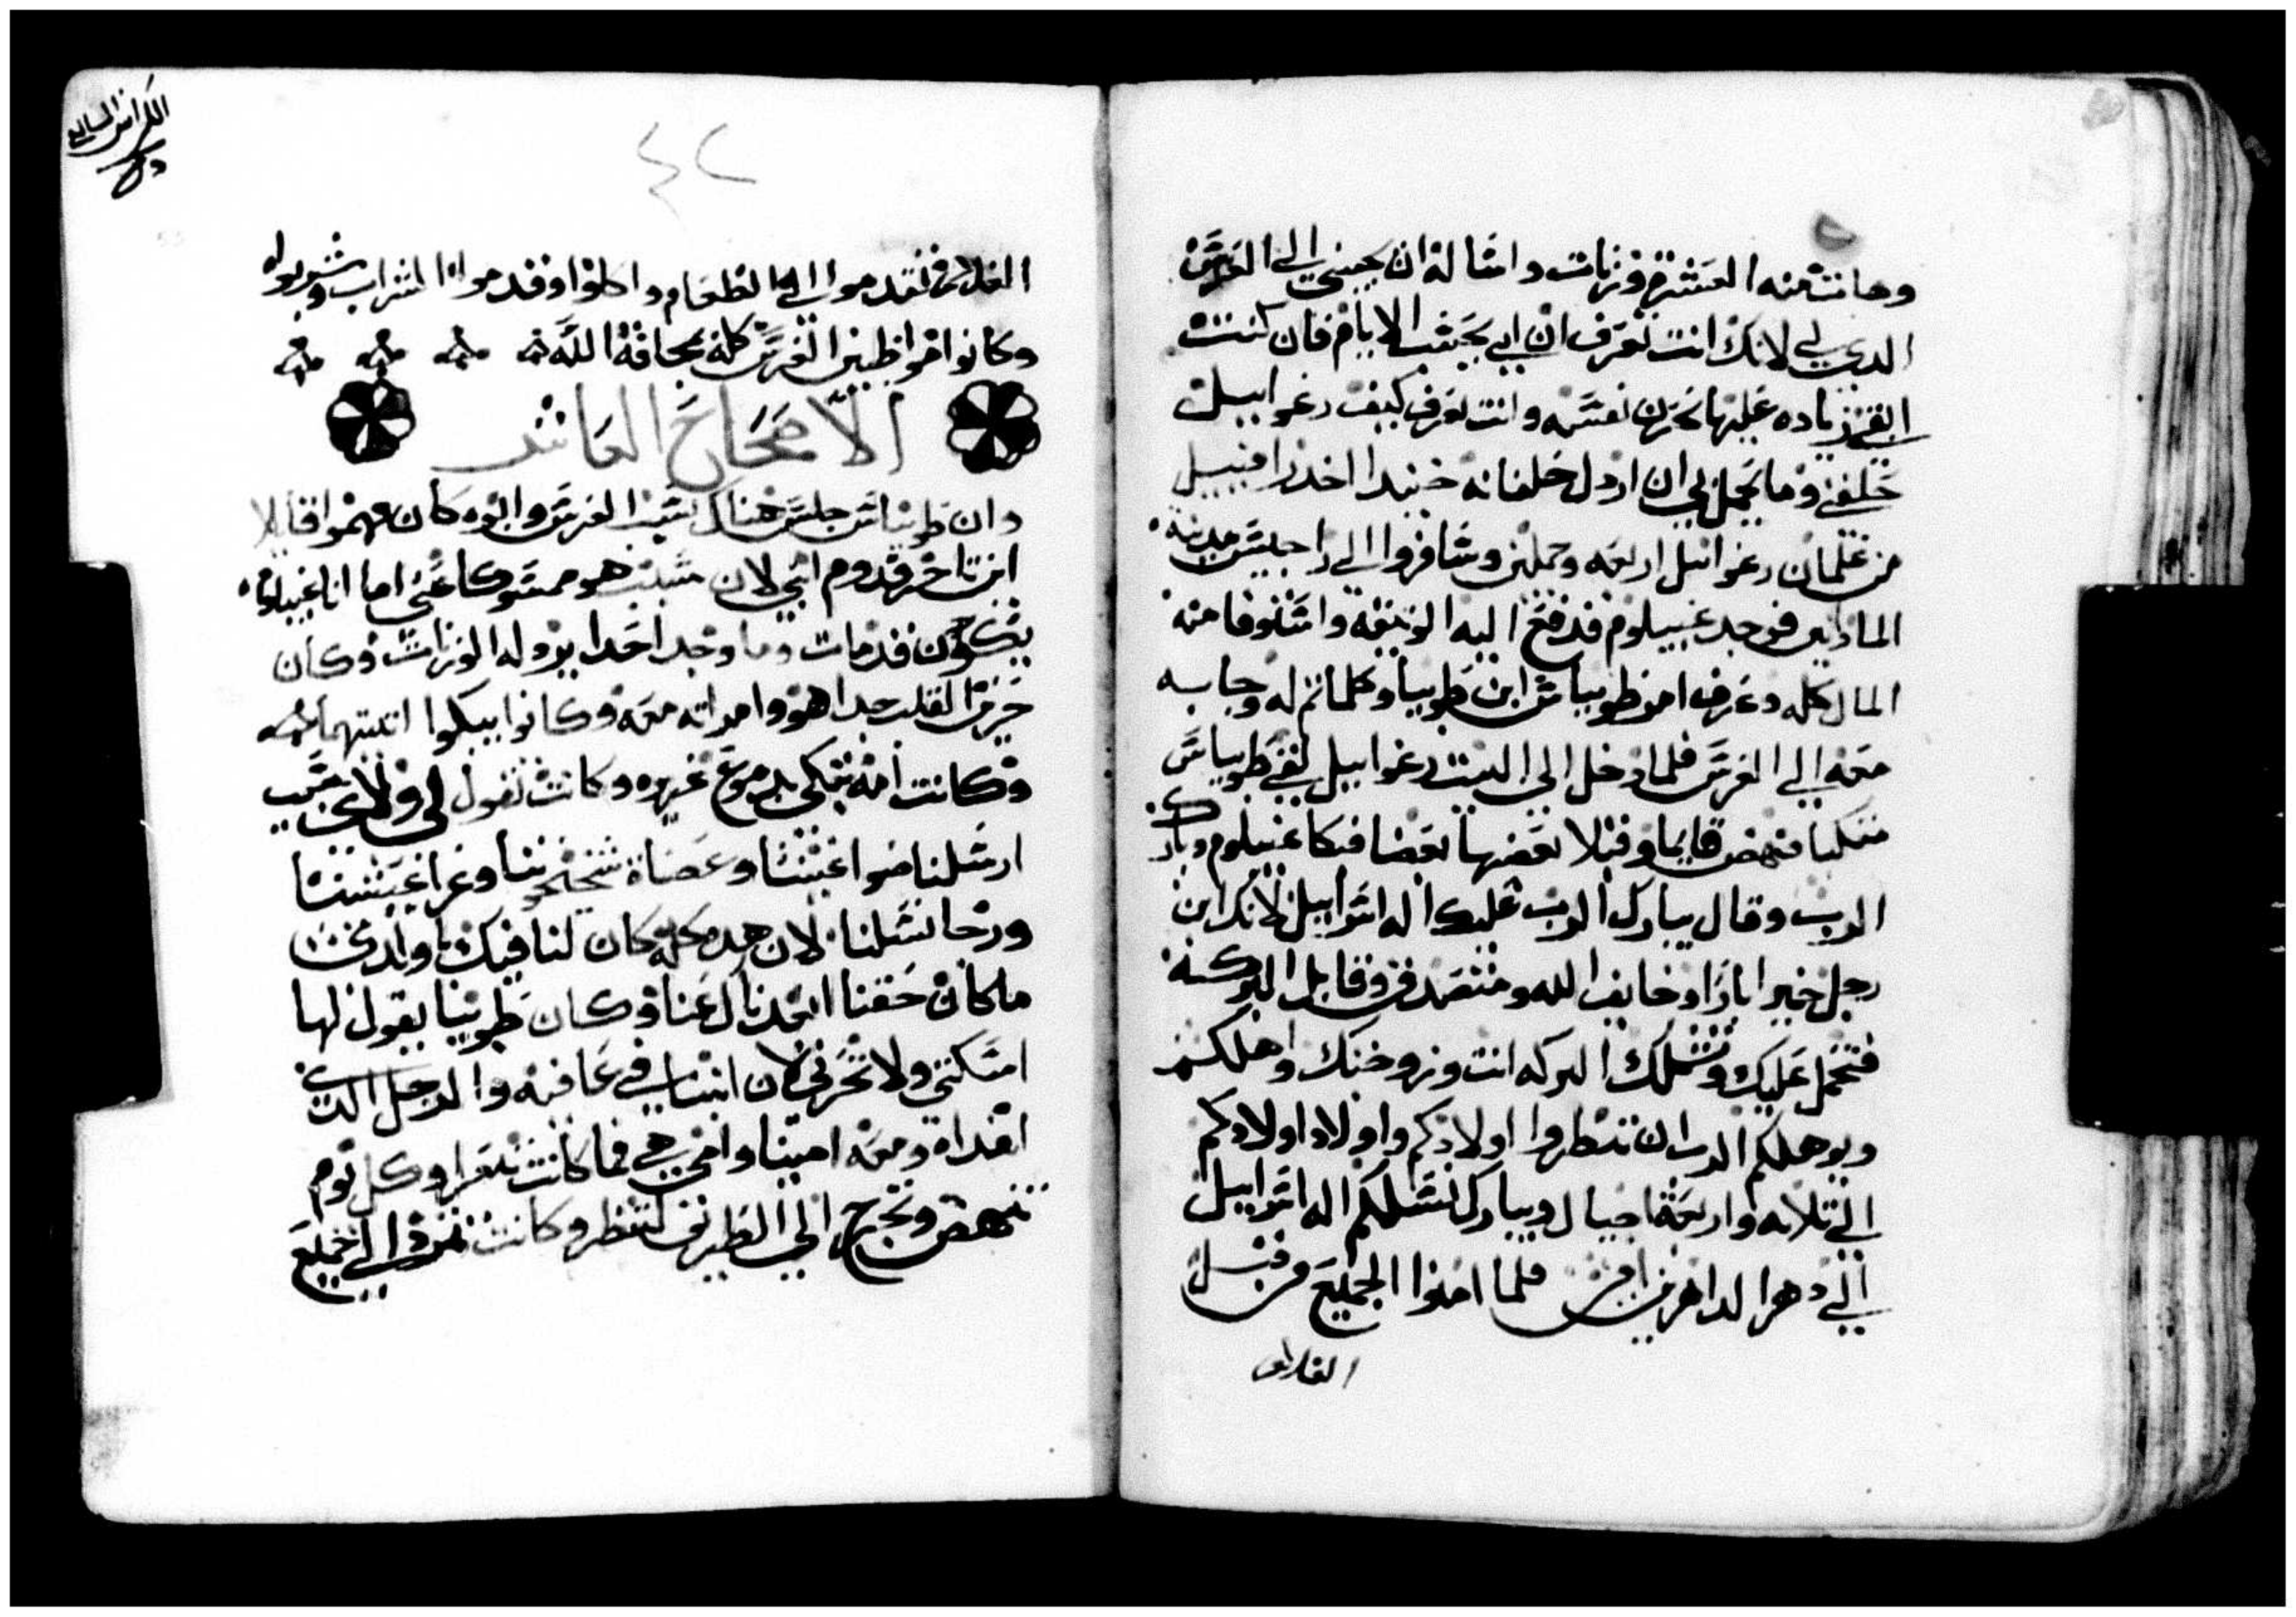 وهات منه العشرة وزنات واساله ان يجيني الى العرس
الدي لي لانك انت تعرف ان ابي يحسب الايام فان كنت
ابقي زياده عليها تحزن نفسه وانت تعرف كيف رعواييل
حلفني وما يجمل بي ان اردل حلفانه حنيدا اخد رافاييل
من غلمان رعواييل اربعه وجملين وسافروا الى راجيس مدينة
الماديين فوجد غبيلوم فدفع اليه الوتيقه واستوفا منه
المال كله وعرف امر طوبياس ابن طوبيا وكلما تم له وجابه
معه الي العرس فلما دخل الى البيت رعواييل لقي طوبياس
متكيا فنهض قايما وقبلا بعضهما بعضا فبكا غبيلوم وبارك
الرب وقال يبارك الرب عليك اله اسراييل لانك ابن
رجل خير ابارا وخايف الله ومتصدق وقابل البركة
فتحل عليك وتشملك البركه انت وزوجتك واهلكم
ويوهلكم الرب ان تنظروا اولادكم واولاد اولادكم
الي تلاته واربعة اجيال ويبارك نسلكم اله اسراييل
الي دهر الداهرين امين فلما امنوا الجميع من قبل
الغلام
الكراس السابع
٤٢
الغلام فتقدموا الي الطعام واكلوا وقدموا الشراب وشربوا
وكانوا مواظبين العرس كله بمخافة الله
الاصحاح العاشر
وان طوبياس جلس هناك بسبب العرس وابوه كان مهموا قايلا
اين تاخر قدوم ابني لان مسبب هو ممسوكا عني اما انا غبيلوم
يكون قد مات وما وجد احدا يرد له الوزنات وكان
حزين القلب جدا هو وامراته معه وكانوا يبكوا اتنيتهما
وكانت امه تبكي بدموع غزيره وكانت تقول لي ولاي سبب
ارسلنا ضوا اعيننا وعصاة شيخوختنا وعزا عيشتنا
ورجا نسلنا لان هده كله كان لنا فيك يا ولدي
ما كان حقنا ابعدناك عنا وكان طوبيا يقول لها
اسكتي ولا تحزني لان ابننا في عافيه والرجل الدي
اهداه ومعه امينا وامي هي فما كانت تتعزا وكل يوم
تنهض وتخرج الى الطريق لتنظر وكانت تمرد الي جميع